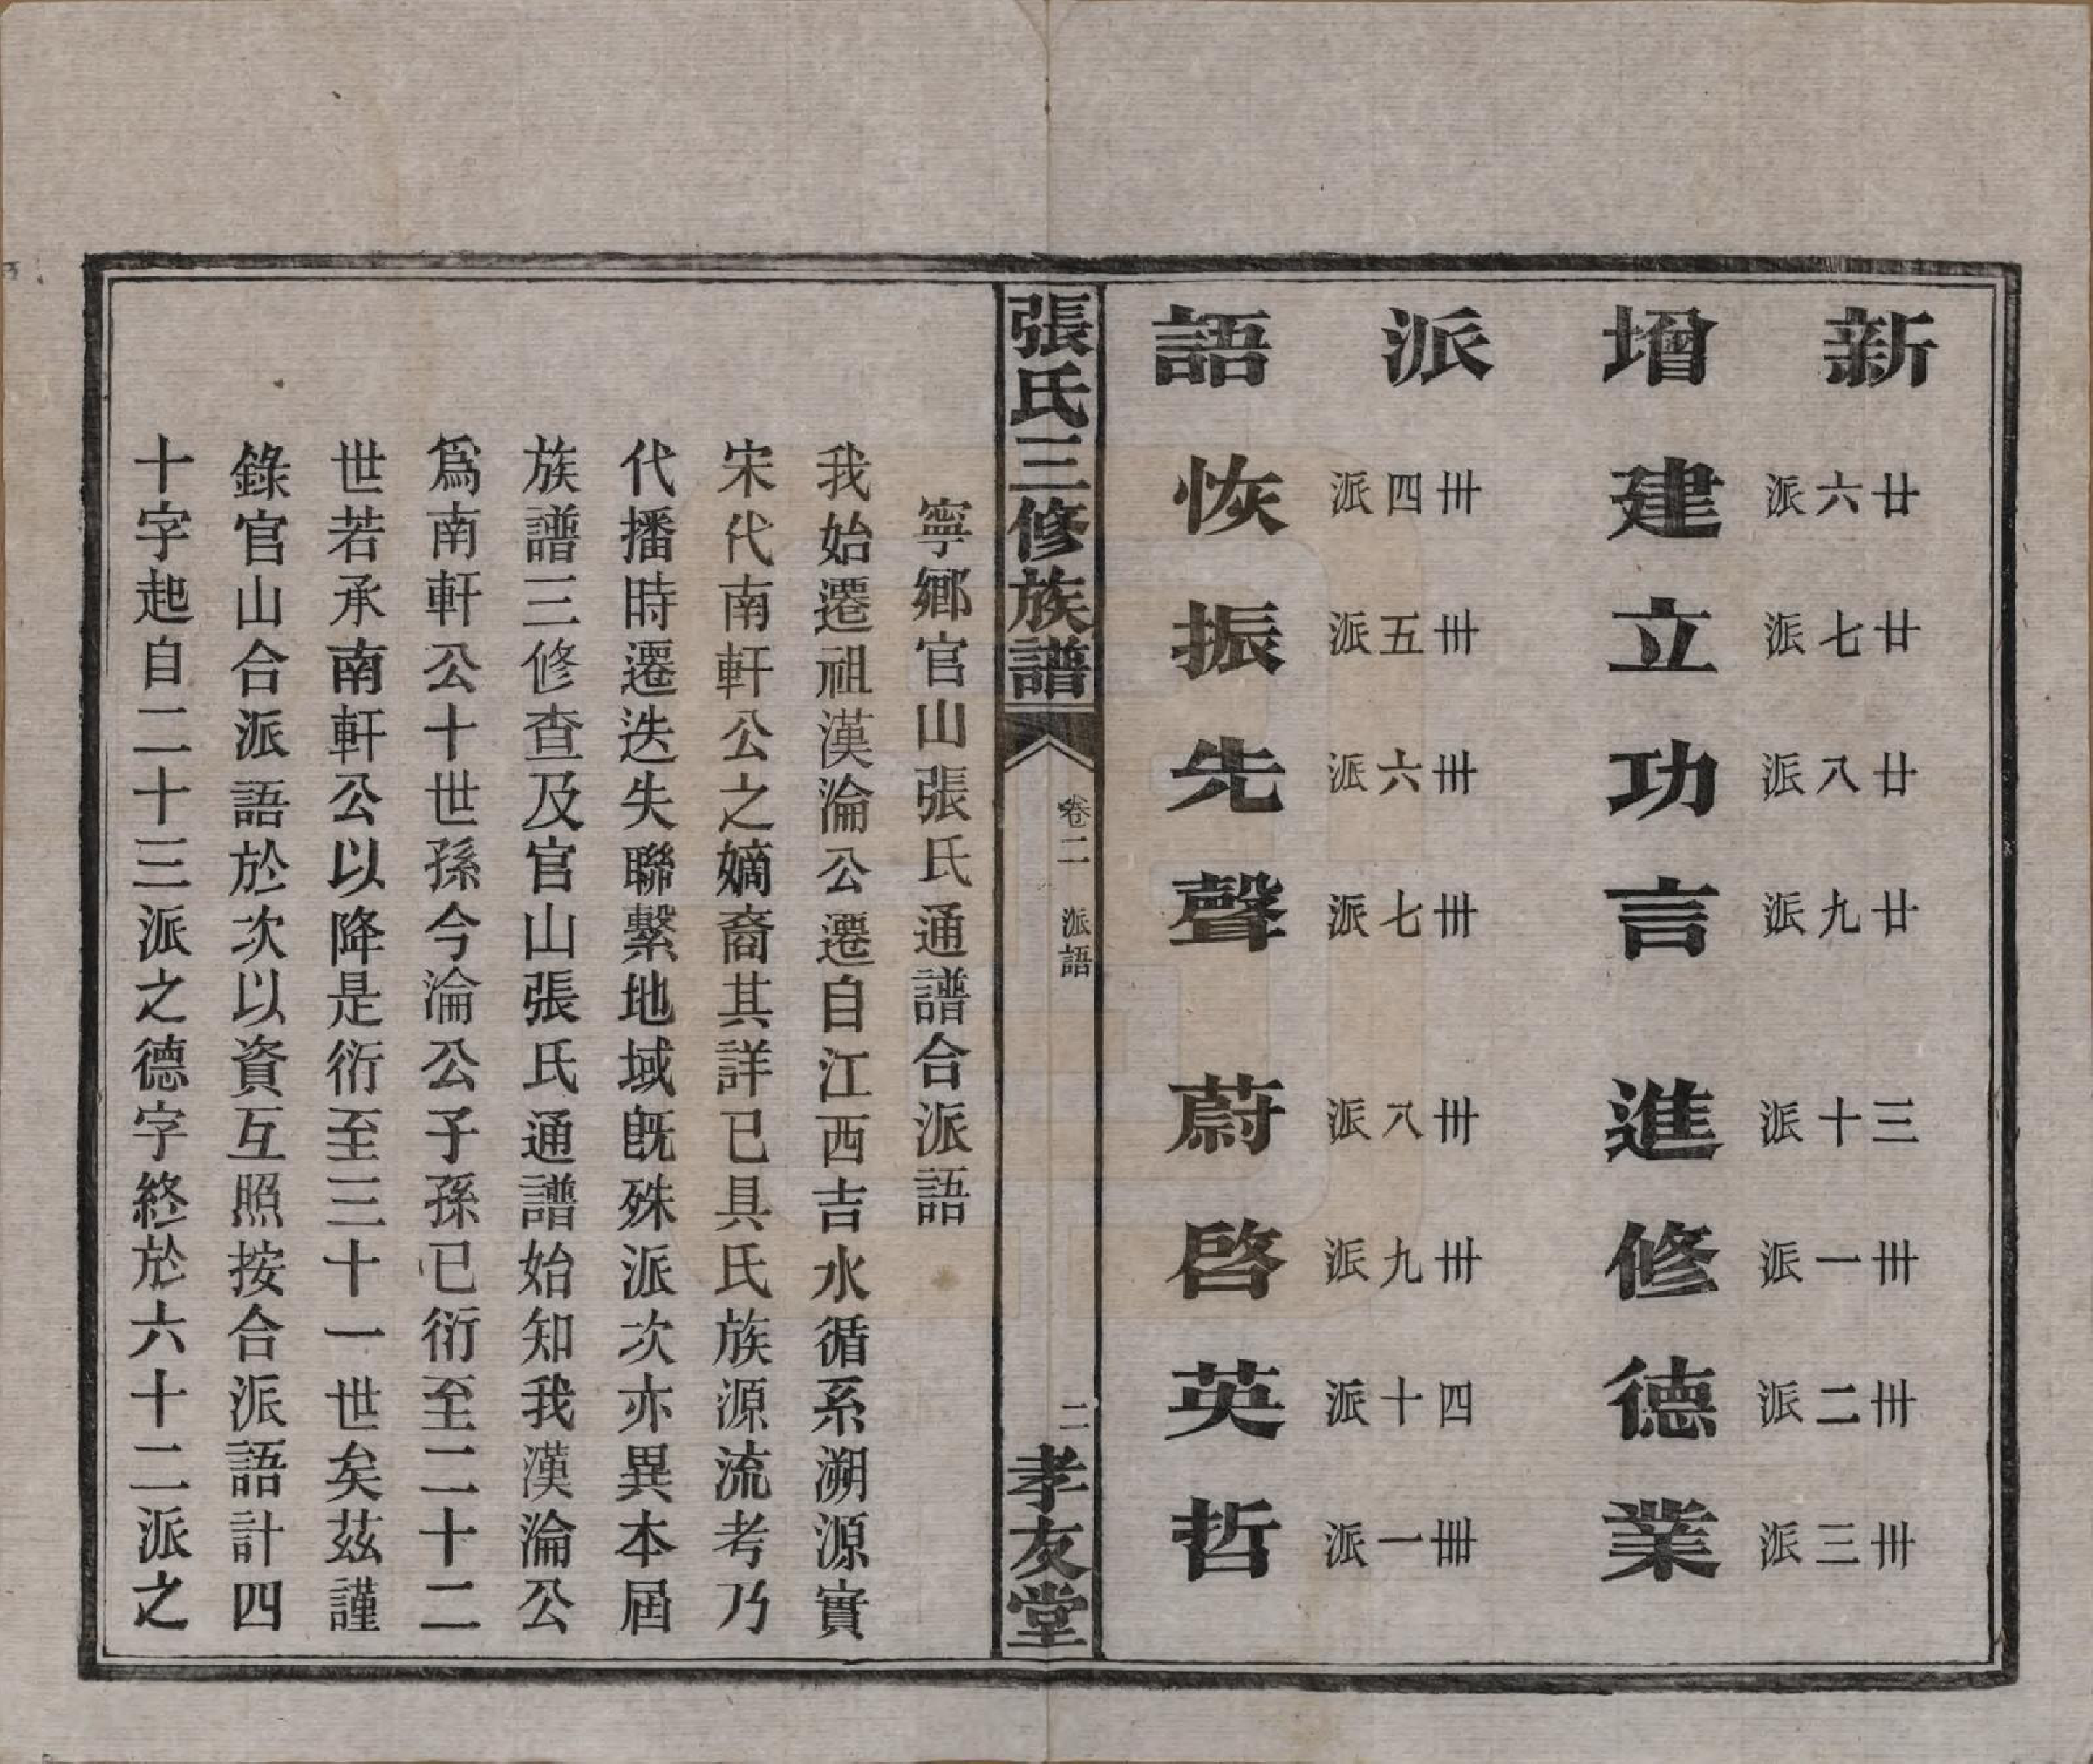 新增派語
廿六派 廿七派 廿八派 廿九派 三十派 卅一派 卅二派 卅三派
建立功言 進修德業
卅四派 卅五派 卅六派 卅七派 卅八派 卅九派 四十派 卌一派
恢振先聲 蔚啓英哲
張氏三修族譜 卷二 派語 二 孝友堂
寧鄉官山張氏通譜合派語
我始遷祖漢淪公遷自江西吉水循系溯源實
宋代南軒公之嫡裔其詳已具氏族源流考乃
代播時遷迭失聯繫地域既殊派次亦異本屆
族譜三修查及官山張氏通譜始知我漢淪公
爲南軒公十世孫今淪公子孫已衍至二十二
世若承南軒公以降是衍至三十一世矣茲謹
錄官山合派語於次以資互照按合派語計四
十字起自二十三派之德字終於六十二派之